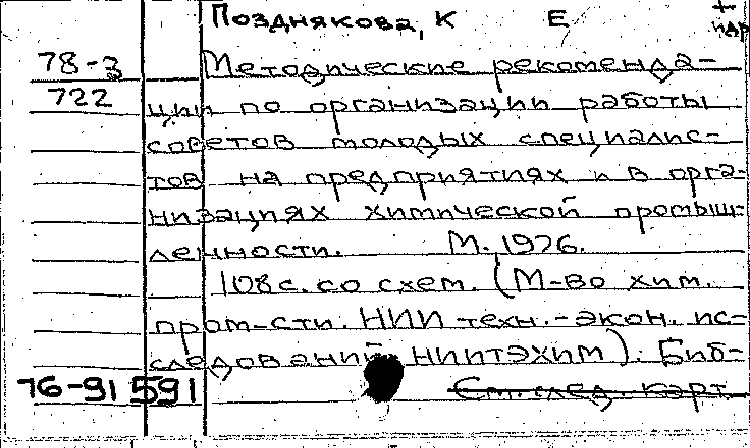 Позднякова, К Е + идр
78-3 Методические рекоменда-
722 ции по организации работы
советов молодых специалис-
тов на предприятиях и в орга-
низациях химической промыш-
ленности. М. 1976.
108с. со схем. (М-во хим.
пром-сти. НИИ техн.-экон. ис-
следований НИИТЭХИМ). Биб-
76-91591 См. след. карт